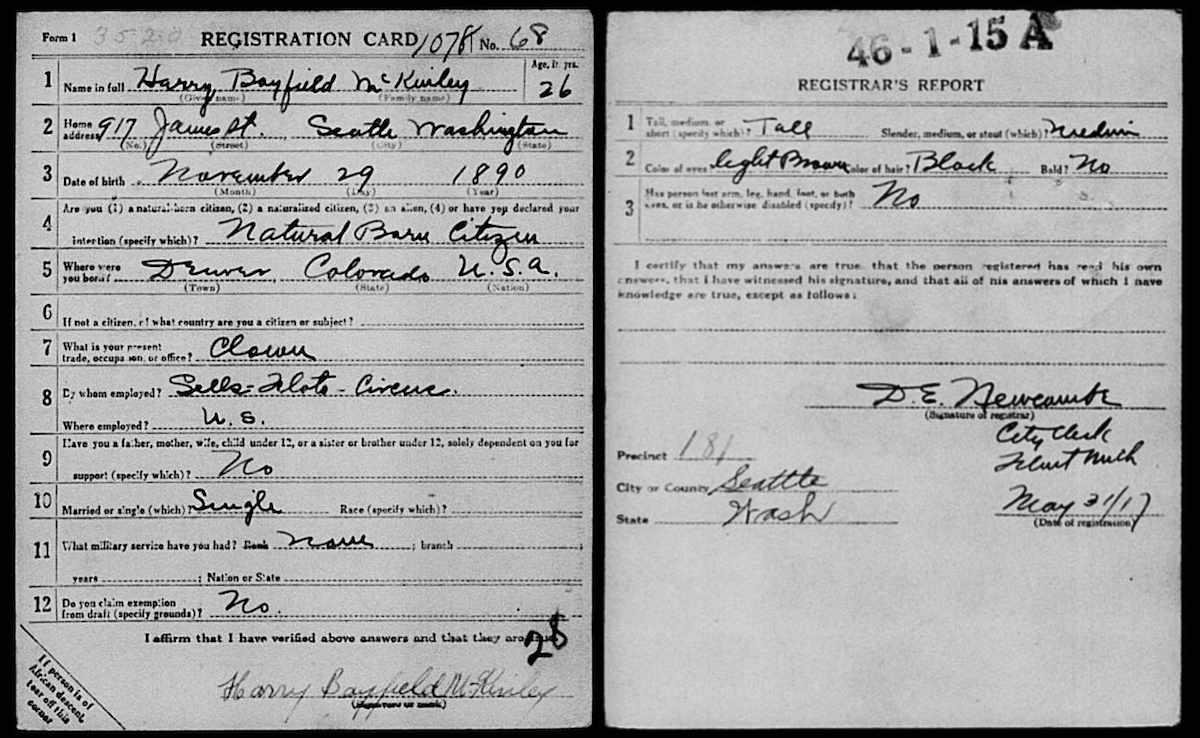 Form 1 3520 REGISTRATION CARD 1078 No. 68
1 Name in full Harry Bayfield McKinley Age, in yrs. 26
(Given name) (Family name)
2 Home address 917 James St. Seattle Washington
(No.) (Street) (City) (State)
3 Date of birth November 29 1890
(Month) (Day) (Year)
Are you (1) a natural-born citizen, (2) a naturalized citizen, (3) an alien, (4) or have you declared your
4 intention (specify which)? Natural Born Citizen
5 Where were you born? Denver, Colorado U.S.A.
(Town) (State) (Nation)
6 If not a citizen, of what country are you a citizen or subject?
7 What is your present trade, occupation, or office? Clown
8 By whom employed? Sells-Floto-Circus.
Where employed? U.S.
9 Have you a father, mother, wife, child under 12, or a sister or brother under 12, solely dependent on you for
support (specify which)? No
10 Married or single (which)? Single Race (specify which)?
11 What military service have you had? Rank None ; branch ;
years ; Nation or State
12 Do you claim exemption from draft (specify grounds)? No.
I affirm that I have verified above answers and that they are true.
28
Harry Bayfield McKinley
(Signature or mark)
If person is of
African descent,
tear off this
corner
46-1-15 A
REGISTRAR'S REPORT
1 Tall, medium, or short (specify which)? Tall Slender, medium, or stout (which)? Medium
2 Color of eyes light Brown Color of hair? Black Bald? No
3 Has person lost arm, leg, hand, foot, or both eyes, or is he otherwise disabled (specify)? No
I certify that my answers are true, that the person registered has read his own
answers, that I have witnessed his signature, and that all of his answers of which I have
knowledge are true, except as follows:
D. E. Newcombe
(Signature of registrar)
City Clerk
Flint Mich
Precinct 181
City or County Seattle
State Wash
May 31/17
(Date of registration)